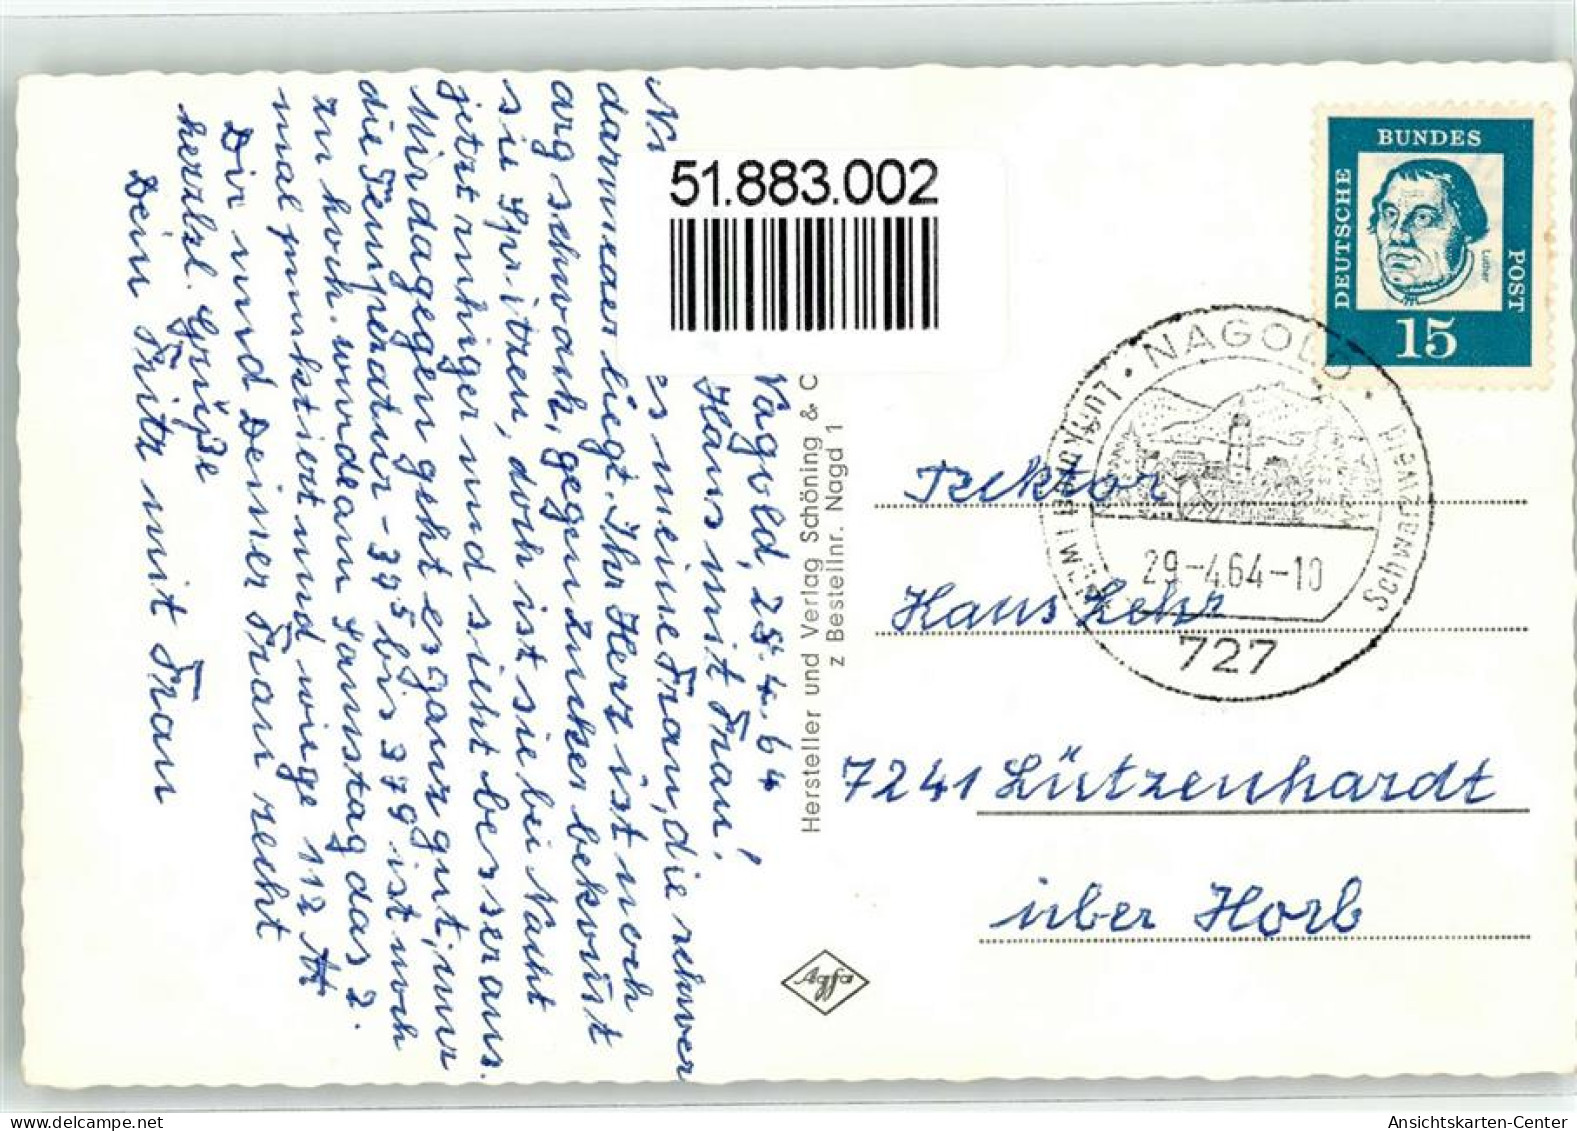 Nagold, 28.4.64
Hans mit Frau!
es meine Frau, die schwer
darnieder liegt. Ihr Herz ist noch
arg schwach, gegen Zucker bekommt
sie Spritzen, doch ist sie bei Nacht
jetzt ruhiger und sieht besser aus.
Mir dagegen geht es ganz gut, nur
die Temperatur - 37⁵ bis 37⁹ ist noch
zu hoch. wurde am Samstag das 2.
mal punktiert und wiege 112 ℔
Dir und Deiner Frau recht
herzl. Grüße
Dein Fritz mit Frau
51.883.002
Hersteller und Verlag Schöning & C
z Bestellnr. Nagd 1
Agfa
DEUTSCHE
BUNDES
POST
Luther
15
NAGOLD
Luftkurort
Schwarzwald
29-4.64-10
727
Rektor
Hans Lehr
7241 Lützenhardt
über Horb
oldthing.de
Ansichtskarten-Center